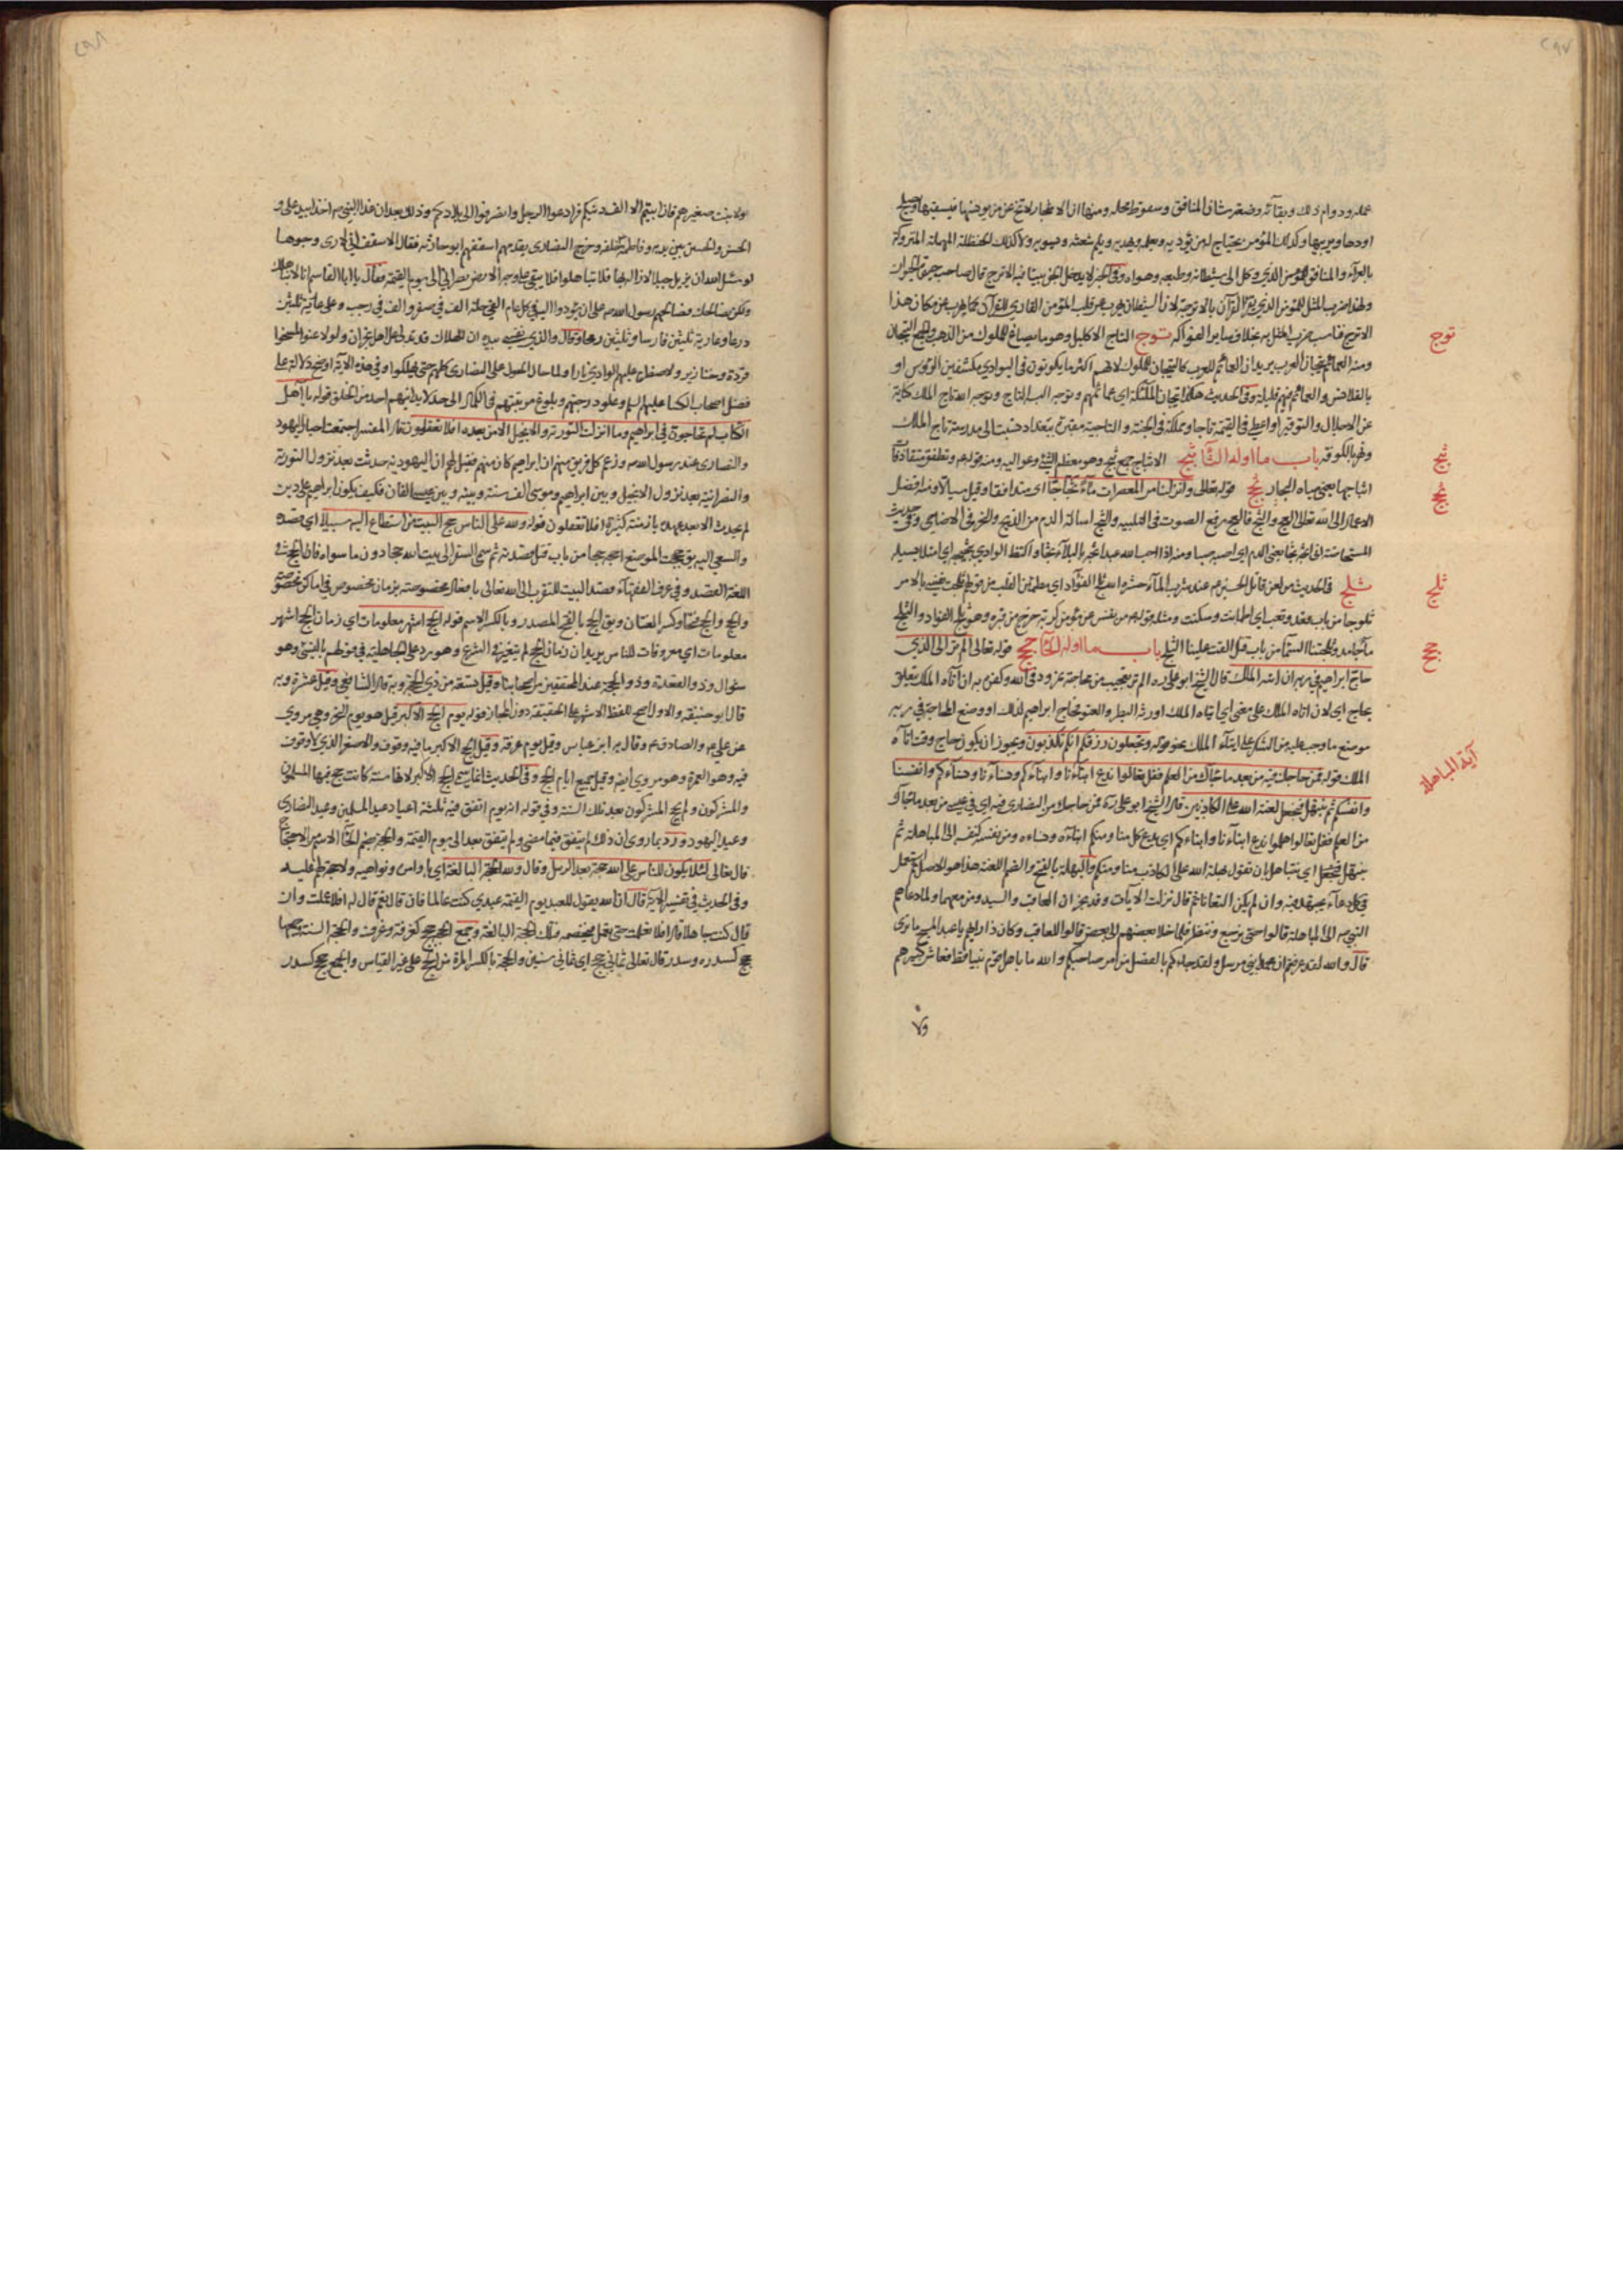 ٢٩٧
عمله ودوام ذلك وبقائه وضعة شان المنافق وسقوط محله ومنها ان الاشجار لا تخ عن من يوجنها فيسقيها ويصلح
اودها ويربيها وكذلك المؤمن يحتاج لمن يؤدبه ويعلمه ويهديه ويلم شعثه ويسويه ولا كذلك الحنظلة المهملة المتروكة
بالعرآء والمنافق الذي وكل الى شيطانه وطبعه وهواه وفي الخبر لا يدخل الجن بيتا فيه الاترج قال صاحب حيوة الحيوان
ولهذا ضرب المثل للمؤمن الذي يقرا القرآن بالاترجة لان الشيطان يهرب عن قلب المؤمن القاري للقرآن كما يهرب عن مكان هذا
الاترج فناسب ضرب المثل به بخلاف سائر الفواكه توج التاج الاكليل وهو ما يصاغ للملوك من الذهب والجمع التيجان
ومنه العمائم تيجان العرب يريد ان العمائم للعرب كالتيجان للملوك لانهم اكثر ما يكونون في البوادي مكشفين الرؤس او
بالقلانس والعمائم فيهم قليلة وفي الحديث هكذا تيجان الملئكة اي عمائمهم وتوجه البسه التاج وتوجه الله تاج الملك كناية
عن الاجلال والتوقير او اعطي في القيمة تاجا ومملكة في الجنة والتاجية مقبرة ببغداد نسبت الى مدرسة تاج الملك
ونهر بالكوفة باب ما اوله الثآ ثبج الاثباج جمع ثبج وهو معظم الشئ وعواليه ومنه قوله ع وتصطفق متقاذفات
اثباجها يعني مياه البحار ثج قوله تعالى وانزلنا من المعصرات مآء ثجاجا اي متدافقا وقيل سيالا ومنه افضل
الاعمال الى الله تعالى العج والثج فالعج رفع الصوت في التلبيه والثج اسالة الدم من الذبح والنحر في الاضاحي وفي حديث
المستحاضة اني اثجه ثجا يعني الدم اي اصبه صبا ومنه اذا احب الله عبدا ثجه بالبلآء ثجا واكتظ الوادي بثجيجه اي امتلا بسيله
ثلج في الحديث من لعن قاتل الحسين ع عند شرب المآء حشره الله ثلج الفؤاد اي مطمئن القلب من قولهم ثلجت نفسه بالامر
ثلوجا من باب قعد وتعب اي اطمانت وسكنت ومثله قوله ع من نفس عن مؤمن كربة خرج من قبره وهو ثلج الفؤاد والثلج
مآء جامد وثلجتنا السمآء من باب قتل القت علينا الثلج باب ما اوله الحآ حجج قوله تعالى الم تر الى الذي
حاج ابراهيم في ربه ان اتيه الملك قال الشيخ ابو علي ره الم تر تعجيب من محاجة نمرود في الله وكفره به ان آتاه الملك يتعلق
بحاج اي لان اتاه الملك على معنى اي ايتاه الملك اورثه البطر والعتو فحاج ابراهيم لذلك او وضع المحاجة في ربه
موضع ما وجب عليه من الشكر على ايتآء الملك نحو قوله وتجعلون رزقكم انكم تكذبون ويجوز ان يكون حاج وقت اتآه
الملك قوله فمن حاجك فيه من بعد ما جآءك من العلم فقل تعالوا ندع ابنآءنا وابنآءكم ونسآءنا ونسآءكم وانفسنا
وانفسكم ثم نبتهل فنجعل لعنة الله على الكاذبين قال الشيخ ابو علي ره فمن حاجك من النصارى فيه اي في عيسى من بعد ما جآءك
من العلم فقل تعالوا هلموا ندع ابنآءنا وابنآءكم اي يدع كل منا ومنكم ابنآءه ونسآءه ومن نفسه كنفسه الى المباهلة ثم
نبتهل فنجعل اي نتباهل بان نقول بهلة الله على الكاذب منا ومنكم والبهلة بالفتح والضم اللعنة هذا هو الاصل ثم استعمل
في كل دعآء يجتهد فيه وان لم يكن التعانا ثم قال نزلت الآيات وفد نجران العاقب والسيد ومن معهما ولما دعاهم
النبي ص الى المباهلة قالوا حتى نرجع وننظر فلما خلا بعضهم الى بعض قالوا للعاقب وكان ذا رايهم يا عبد المسيح ما ترى
قال والله لقد عرفتم ان محمدا نبي مرسل ولقد جاءكم بالفصل من امر صاحبكم والله ما باهل قوم نبيا قط فعاش كبيرهم
ولا
توج
ثبج
ثجج
ثلج
حجج
آية المباهلة
٢٩٨
ولا نبت صغيرهم فان ابيتم الا الف دينكم فوادعوا الرجل وانصرفوا الى بلادكم وذلك بعد ان غدا النبي ص اخذا بيد علي و
الحسن والحسين بين يديه وفاطمة خلفه وخرج النصارى يقدمهم اسقفهم ابو حارثة فقال الاسقف اني لارى وجوها
لو سئل الله ان يزيل جبلا لازاله بها فلا تباهلوا فلا يبقى على وجه الارض نصراني الى يوم القيمة فقال يا ابا القاسم انا لا نباهلك
ولكن نصالحك فصالحهم رسول الله ص على ان يؤدوا اليه في كل عام الفي حلة الف في صفر والف في رجب وعلى عارية ثلثين
درعا وعارية ثلثين فارسا وثلثين رمحا وقال والذي نفسي بيده ان الهلاك قد تدلى على اهل نجران ولو لاعنوا لمسخوا
قردة وخنازير ولاضطرم عليهم الوادي نارا ولما حال الحول على النصارى كلهم حتى يهلكوا وفي هذه الآية اوضح دلالة على
فضل اصحاب الكسا عليهم السلم وعلو درجتهم وبلوغ مرتبتهم في الكمال الى حد لا يدانيهم احد من الخلق قوله يا اهل
الكتاب لم تحاجون في ابراهيم وما انزلت التورية والانجيل الا من بعده افلا تعقلون قال المفسر اجتمعت احبار اليهود
والنصارى عند رسول الله ص وزعم كل فريق منهم ان ابراهيم كان منهم فقيل لهم ان اليهودية حدثت بعد نزول التورية
والنصرانية بعد نزول الانجيل وبين ابراهيم وموسى الف سنة وبينه وبين عيسى الفان فكيف يكون ابراهيم على دين
لم يحدث الا بعد عهده بازمنة كثيرة افلا تعقلون قوله ولله على الناس حج البيت من استطاع اليه سبيلا اي قصده
والسعي اليه يق حججت الموضع احجه حجا من باب قتل قصدته ثم سمي السفر الى بيت الله حجا دون ما سواه فالحج في
اللغة القصد وفي عرف الفقهآء قصد البيت للتقرب الى الله تعالى بافعال مخصوصة بزمان مخصوص في اماكن مخصوصة
والحج والحج فتحا وكسرا لغتان ويق الحج بالفتح المصدر وبالكسر الاسم قوله الحج اشهر معلومات اي زمان الحج اشهر
معلومات اي معروفات للناس يريد ان زمان الحج لم يتغير في الشرع وهو رد على الجاهلية في قولهم بالنسئ وهو
شوال وذو القعدة وذو الحجة عند المحققين من اصحابنا وقيل تسعة من ذي الحجة وبه قال الشافعي وقيل عشرة وبه
قال ابو حنيفة والاول اصح للفظ الاشهر على الحقيقة دون المجاز قوله يوم الحج الاكبر قيل هو يوم النحر وهو مروي
عن علي ع والصادق ع وقال به ابن عباس وقيل يوم عرفة وقيل الحج الاكبر ما فيه وقوف والاصغر الذي لا وقوف
فيه وهو العمرة وهو مروي ايضا وقيل جميع ايام الحج وفي الحديث انما سمي الحج الاكبر لانها سنة كانت حج فيها المسلمون
والمشركون ولم يحج المشركون بعد تلك السنة وفي قوله انه يوم اتفق فيه ثلثة اعياد عيد المسلمين وعيد النصارى
وعيد اليهود ورد بما روى ان ذلك لم يتفق فيما مضى ولم يتفق بعد الى يوم القيمة والحجة بضم الحآء الاسم من الاحتجاج
قال تعالى لئلا يكون للناس على الله حجة بعد الرسل وقال ولله الحجة البالغة اي باوامره ونواهيه ولا حجة لهم عليه
وفي الحديث في تفسير الآية قال ان الله يقول للعبد يوم القيمة عبدي كنت عالما فان قال نعم قال له افلا عملت وان
قال كنت جاهلا قال افلا تعلمت حتى تعمل فيخصمه فتلك الحجة البالغة وجمع الحجة حجج كغرفة وغرف والحجة السنة جمعها
حجج كسدرة وسدر قال تعالى ثماني حجج اي ثماني سنين والحجة بالكسر المرة من الحج على غير القياس والجمع حجج كسدر